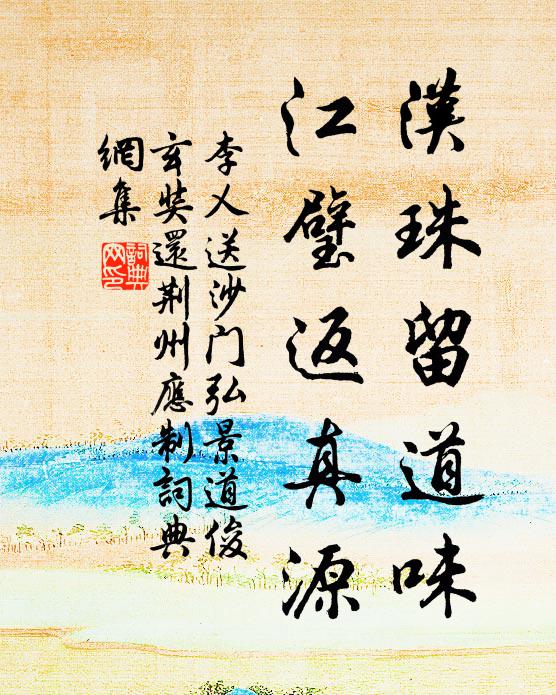 漢珠留道味
江璧返真源
李乂送沙门弘景道俊
玄奘還荆州應制詞典
網集
詞典
网印